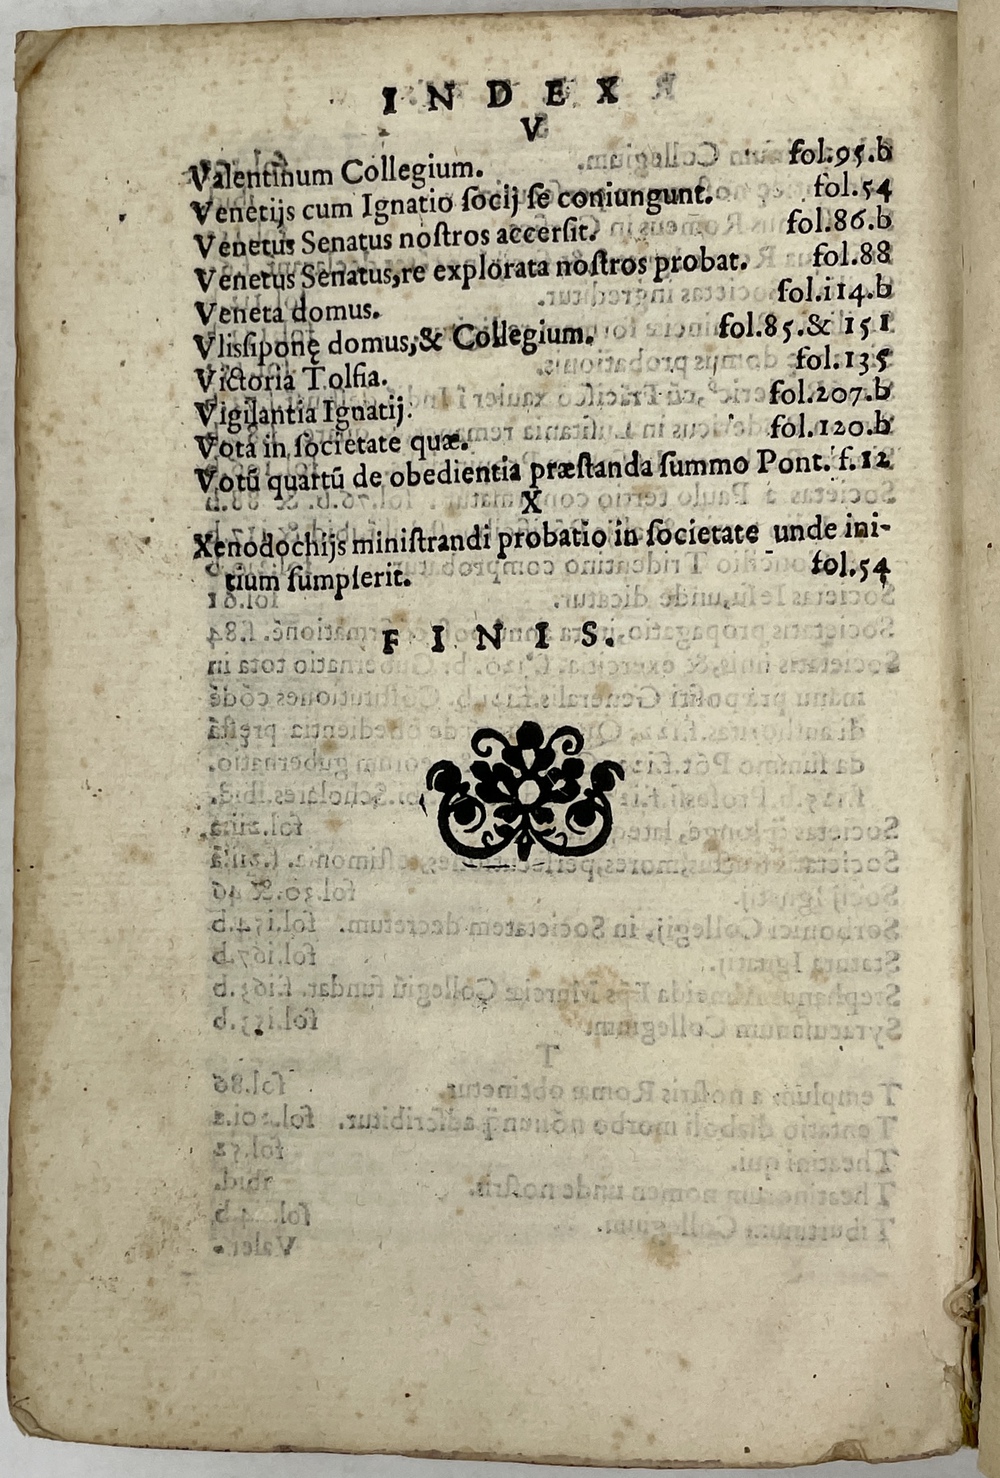 INDEX
V
Valentinum Collegium. fol.95.b
Venetijs cum Ignatio ſocij ſe coniungunt. fol.54
Venetus Senatus noſtros accerſit. fol.86.b
Venetus Senatus,re explorata noſtros probat. fol.88
Veneta domus. fol.114.b
Vliſſiponę domus,& Collegium. fol.85.& 151
Victoria Tolfia. fol.135
Vigilantia Ignatij. fol.207.b
Vota in ſocietate quæ. fol.120.b
Votū quartū de obedientia præſtanda ſummo Pont. f.12
X
Xenodochijs miniſtrandi probatio in ſocietate unde ini-
tium ſumpſerit. fol.54
FINIS.